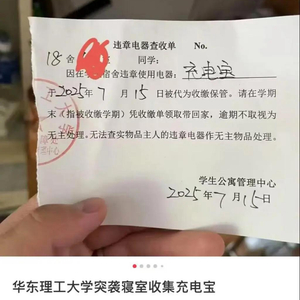 违章电器查收单 No.
18舍 同学:
因在学生宿舍违章使用电器: 充电宝
于2025年7月15日被代为收缴保管。请在学期
末(指被收缴学期)凭收缴单领取带回家,逾期不取视为
无主处理。无法查实物品主人的违章电器作无主物品处理。
学生公寓管理中心
2025年7月15日
华东理工大学突袭寝室收集充电宝